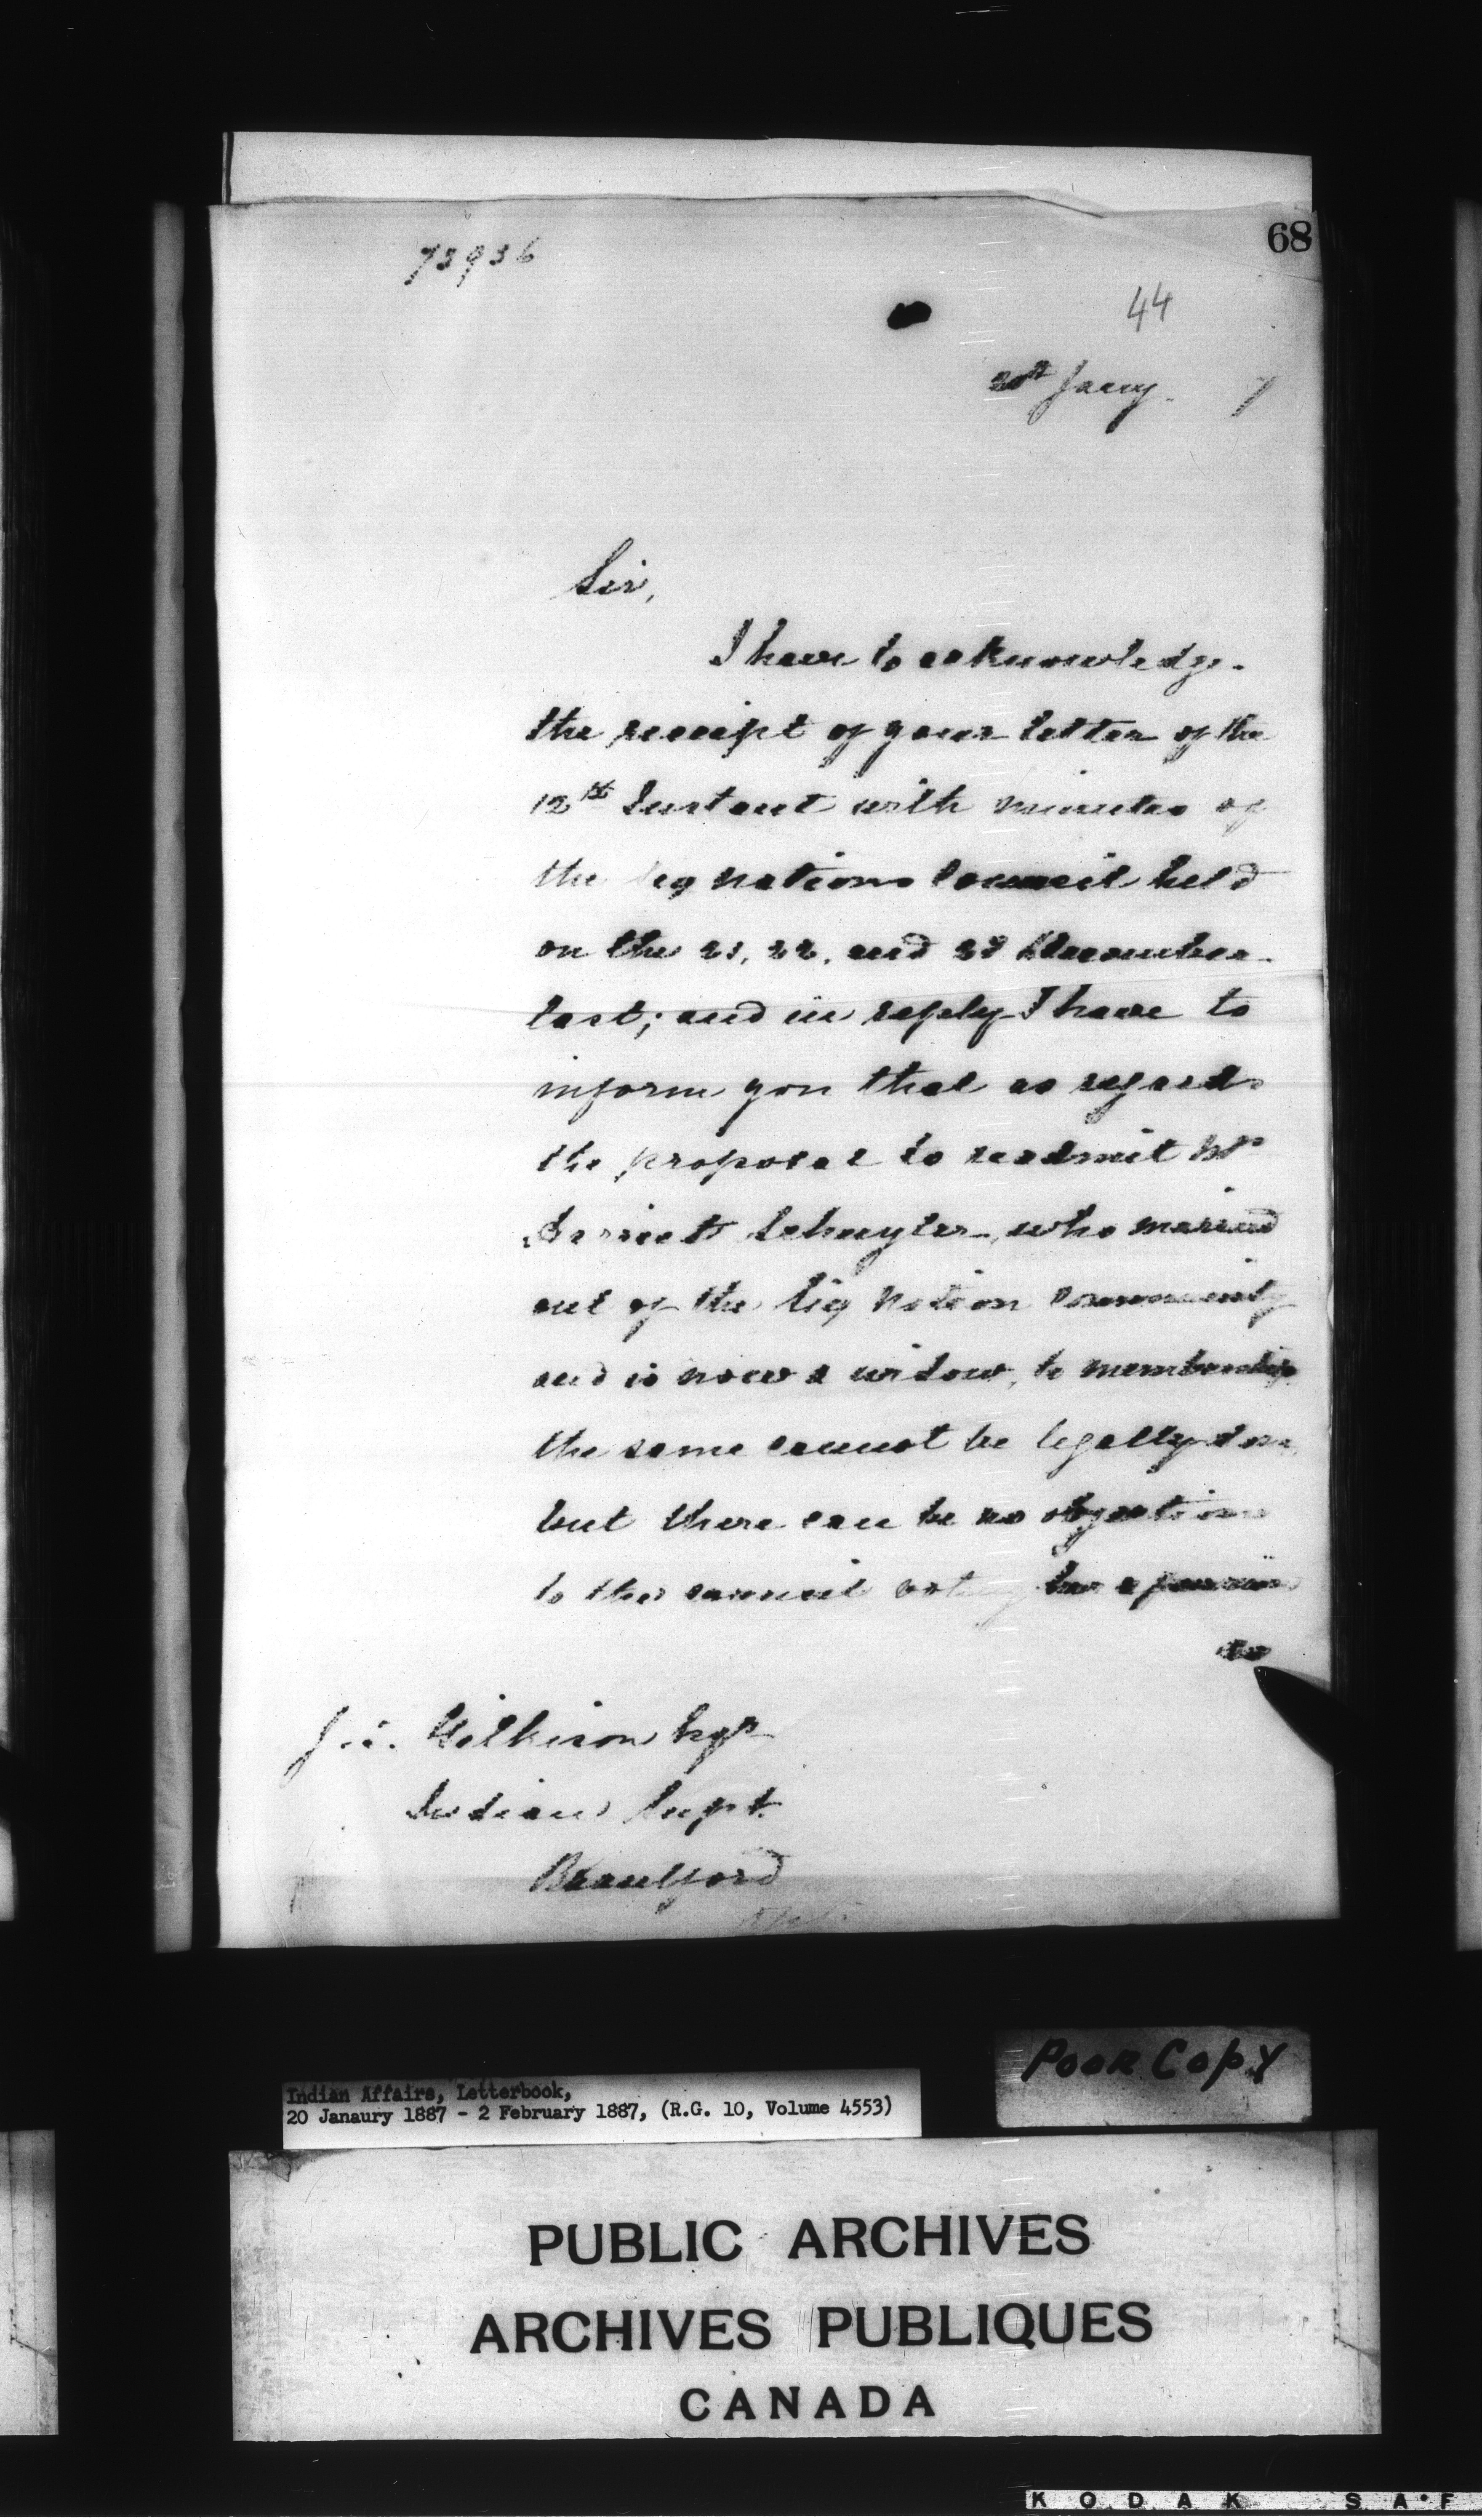 68
73936
44
20th Jany. 7
Sir,
I have to acknowledge
the receipt of your letter of the
12th Instant with minutes of
the Six Nations Council held
on the 21, 22, and 23 December
last; and in reply I have to
inform you that as regards
the proposal to readmit Mrs
Harriett Schuyler, who married
out of the Six Nation Community
and is now a widow, to membership
the same cannot be legally done
but there can be no objection
to the council voting her a pension
to
J. T. Gilkison Esqr
Indian Supt.
Brantford
POOR COPY
Indian Affairs, Letterbook,
20 Janaury 1887 - 2 February 1887, (R.G. 10, Volume 4553)
PUBLIC ARCHIVES
ARCHIVES PUBLIQUES
CANADA
KODAK SA·F